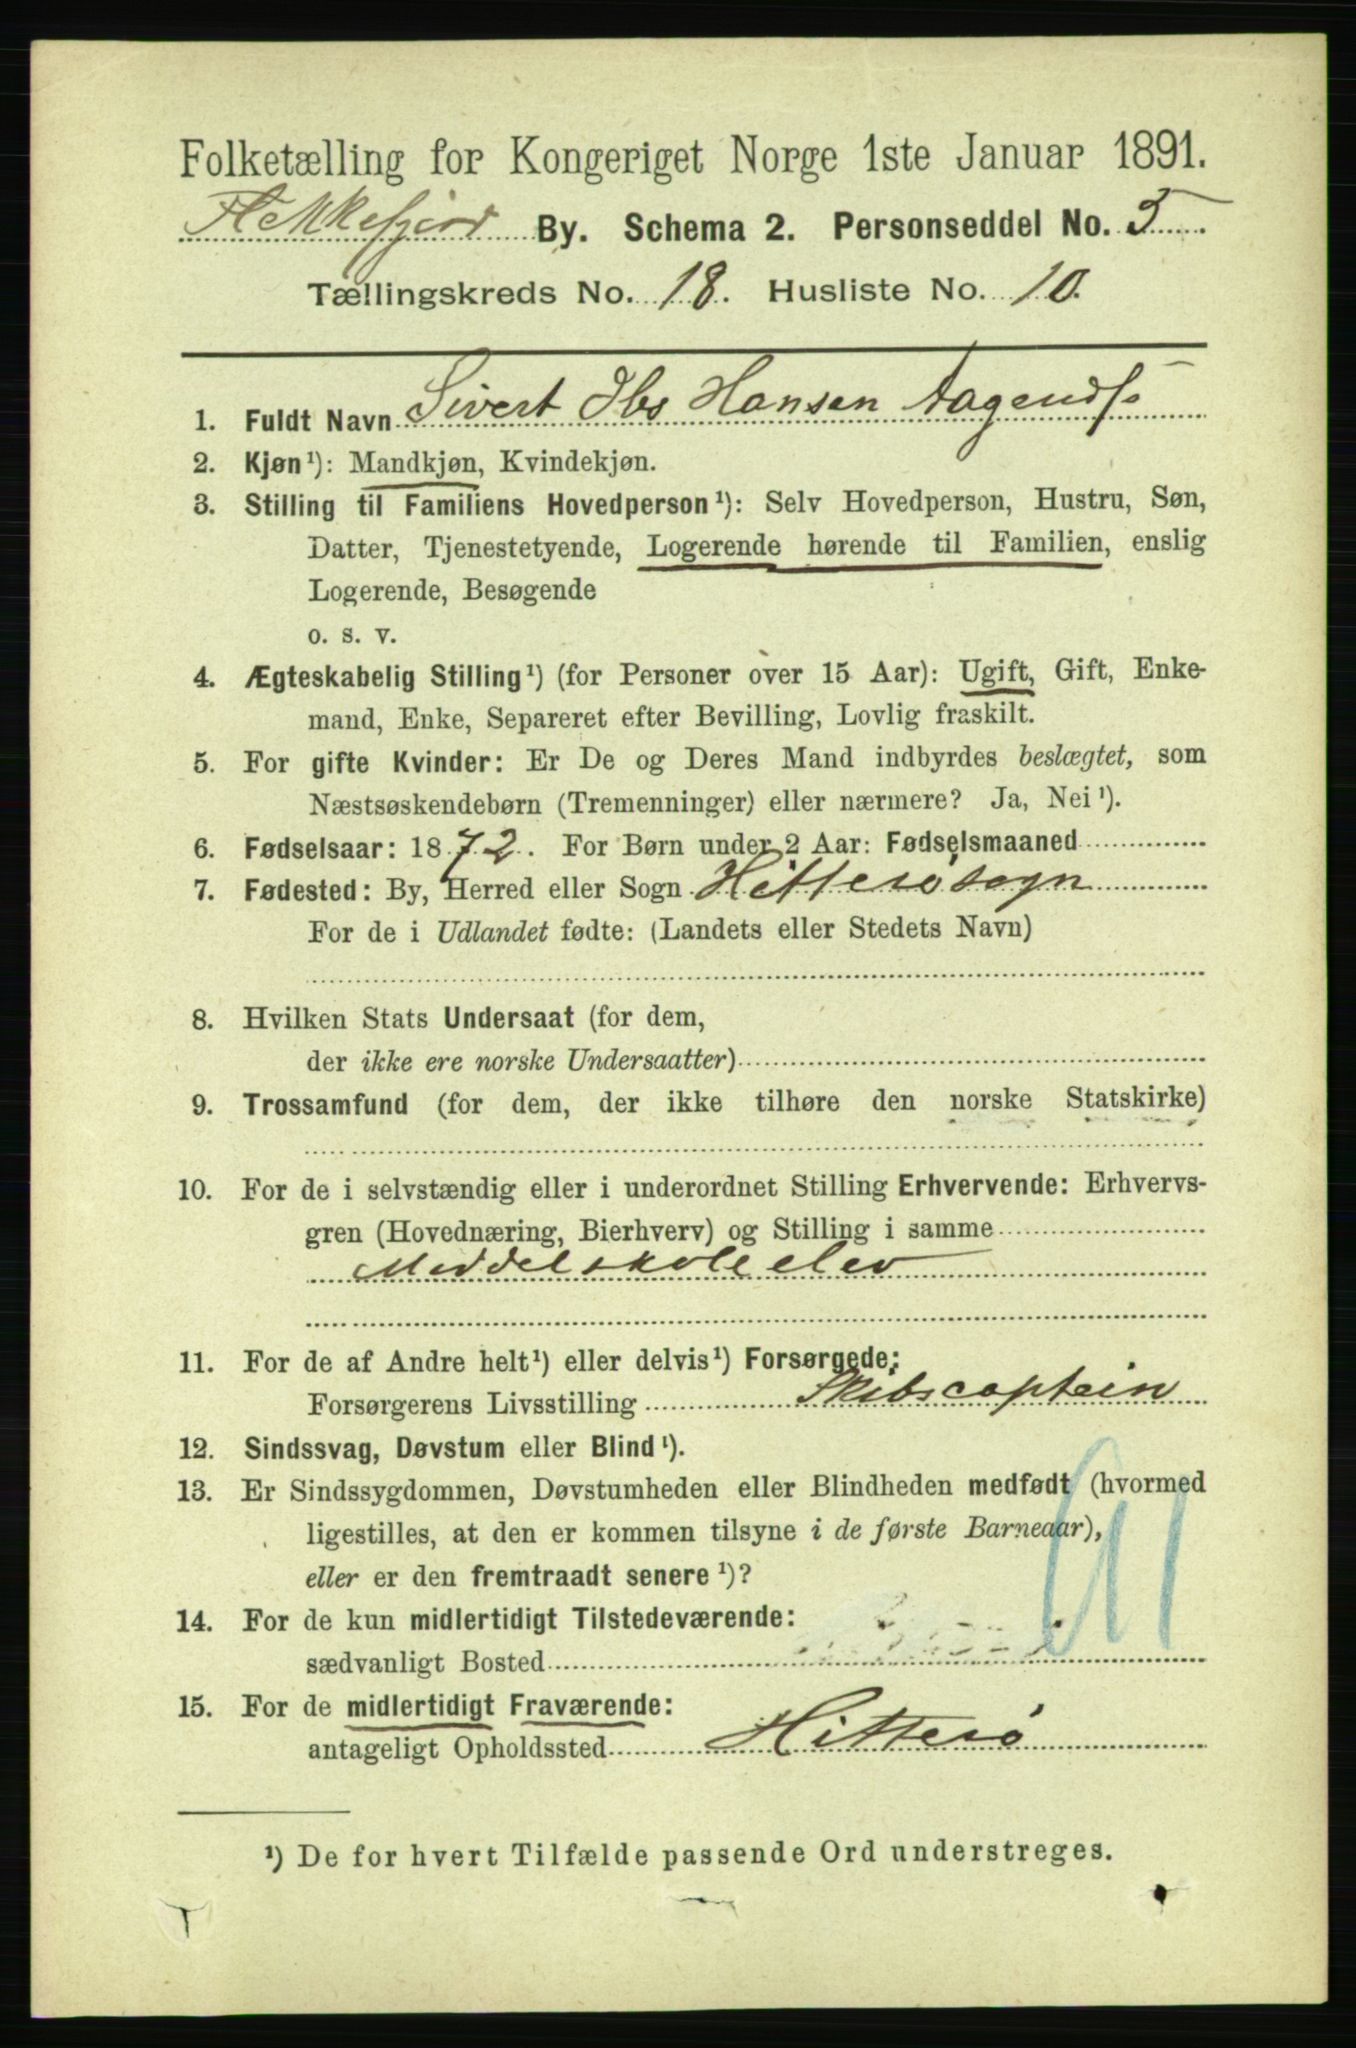 Folketælling for Kongeriget Norge 1ste Januar 1891.
Flekkefjord By. Schema 2. Personseddel No. 5
Tællingskreds No. 18. Husliste No. 10.
1. Fuldt Navn Sivert Ibs Hansen
2. Kjøn¹): Mandkjøn, Kvindekjøn.
3. Stilling til Familiens Hovedperson¹): Selv Hovedperson, Hustru, Søn,
Datter, Tjenestetyende, Logerende hørende til Familien, enslig
Logerende, Besøgende
o. s. v.
4. Ægteskabelig Stilling¹) (for Personer over 15 Aar): Ugift, Gift, Enke-
mand, Enke, Separeret efter Bevilling, Lovlig fraskilt.
5. For gifte Kvinder: Er De og Deres Mand indbyrdes beslægtet, som
Næstsøskendebørn (Tremenninger) eller nærmere? Ja, Nei¹).
6. Fødselsaar: 1872. For Børn under 2 Aar: Fødselsmaaned
7. Fødested: By, Herred eller Sogn Hitterø sogn
For de i Udlandet fødte: (Landets eller Stedets Navn)
8. Hvilken Stats Undersaat (for dem,
der ikke ere norske Undersaatter)
9. Trossamfund (for dem, der ikke tilhøre den norske Statskirke)
10. For de i selvstændig eller i underordnet Stilling Erhvervende: Erhvervs-
gren (Hovednæring, Bierhverv) og Stilling i samme
Middelskoleelev
11. For de af Andre helt¹) eller delvis¹) Forsørgede:
Forsørgerens Livsstilling Skibscaptein
12. Sindssvag, Døvstum eller Blind¹).
13. Er Sindssygdommen, Døvstumheden eller Blindheden medfødt (hvormed
ligestilles, at den er kommen tilsyne i de første Barneaar),
eller er den fremtraadt senere¹)?
14. For de kun midlertidigt Tilstedeværende:
sædvanligt Bosted
15. For de midlertidigt Fraværende:
antageligt Opholdssted Hitterø
¹) De for hvert Tilfælde passende Ord understreges.